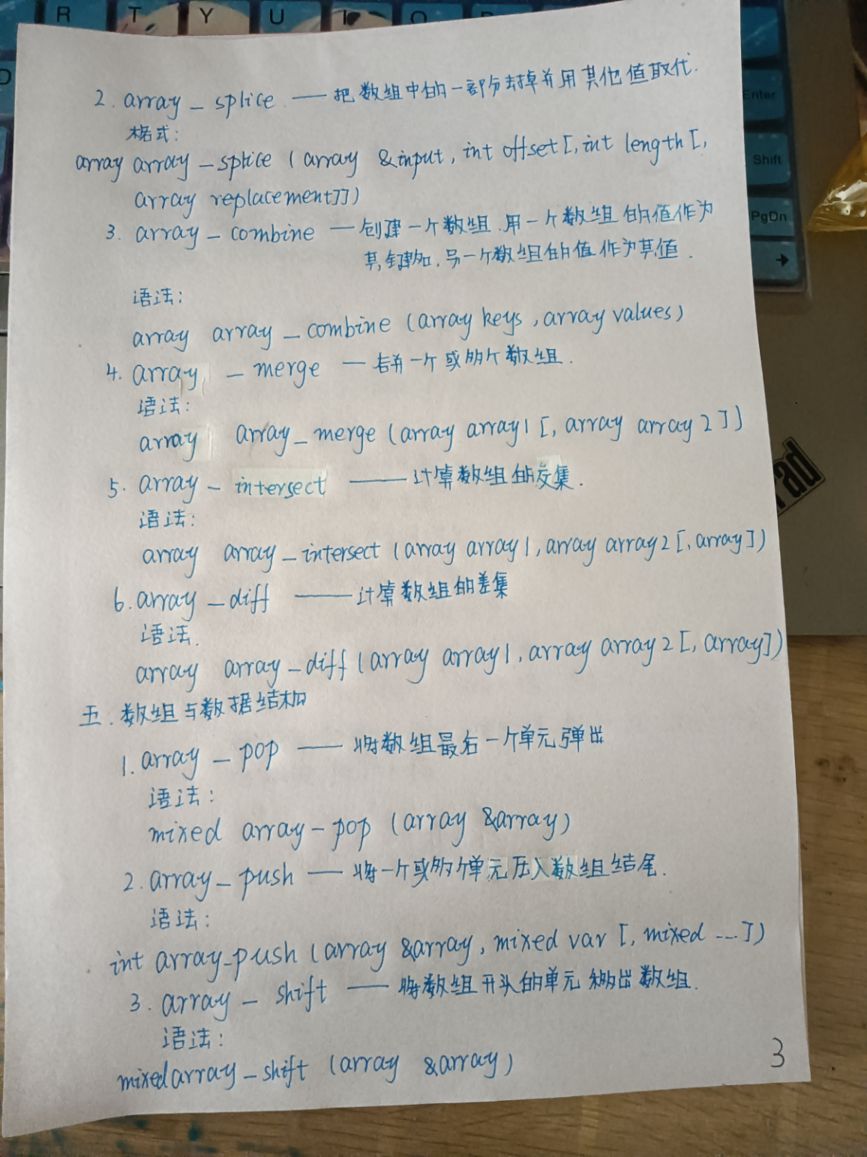 R T Y U I O P
Enter
Shift
PgDn
2. array_splice —— 把数组中的一部分去掉并用其他值取代.
格式:
array array_splice (array &input, int offset[, int length[,
array replacement]])
3. array_combine — 创建一个数组.用一个数组的值作为
其键如,另一个数组的值作为其值.
语法:
array array_combine (array keys, array values)
4. array_merge — 合并一个或多个数组.
语法:
array array_merge (array array1 [, array array2])
5. array_intersect —— 计算数组的交集.
语法:
array array_intersect (array array1, array array2[, array])
6. array_diff —— 计算数组的差集
语法.
array array_diff (array array1, array array2[, array])
五.数组与数据结构
1. array_pop —— 将数组最后一个单元弹出
语法:
mixed array_pop (array &array)
2. array_push —— 将一个或多个单元压入数组结尾.
语法:
int array_push (array &array, mixed var [, mixed ...])
3. array_shift —— 将数组开头的单元移出数组.
语法:
mixed array_shift (array &array)
3